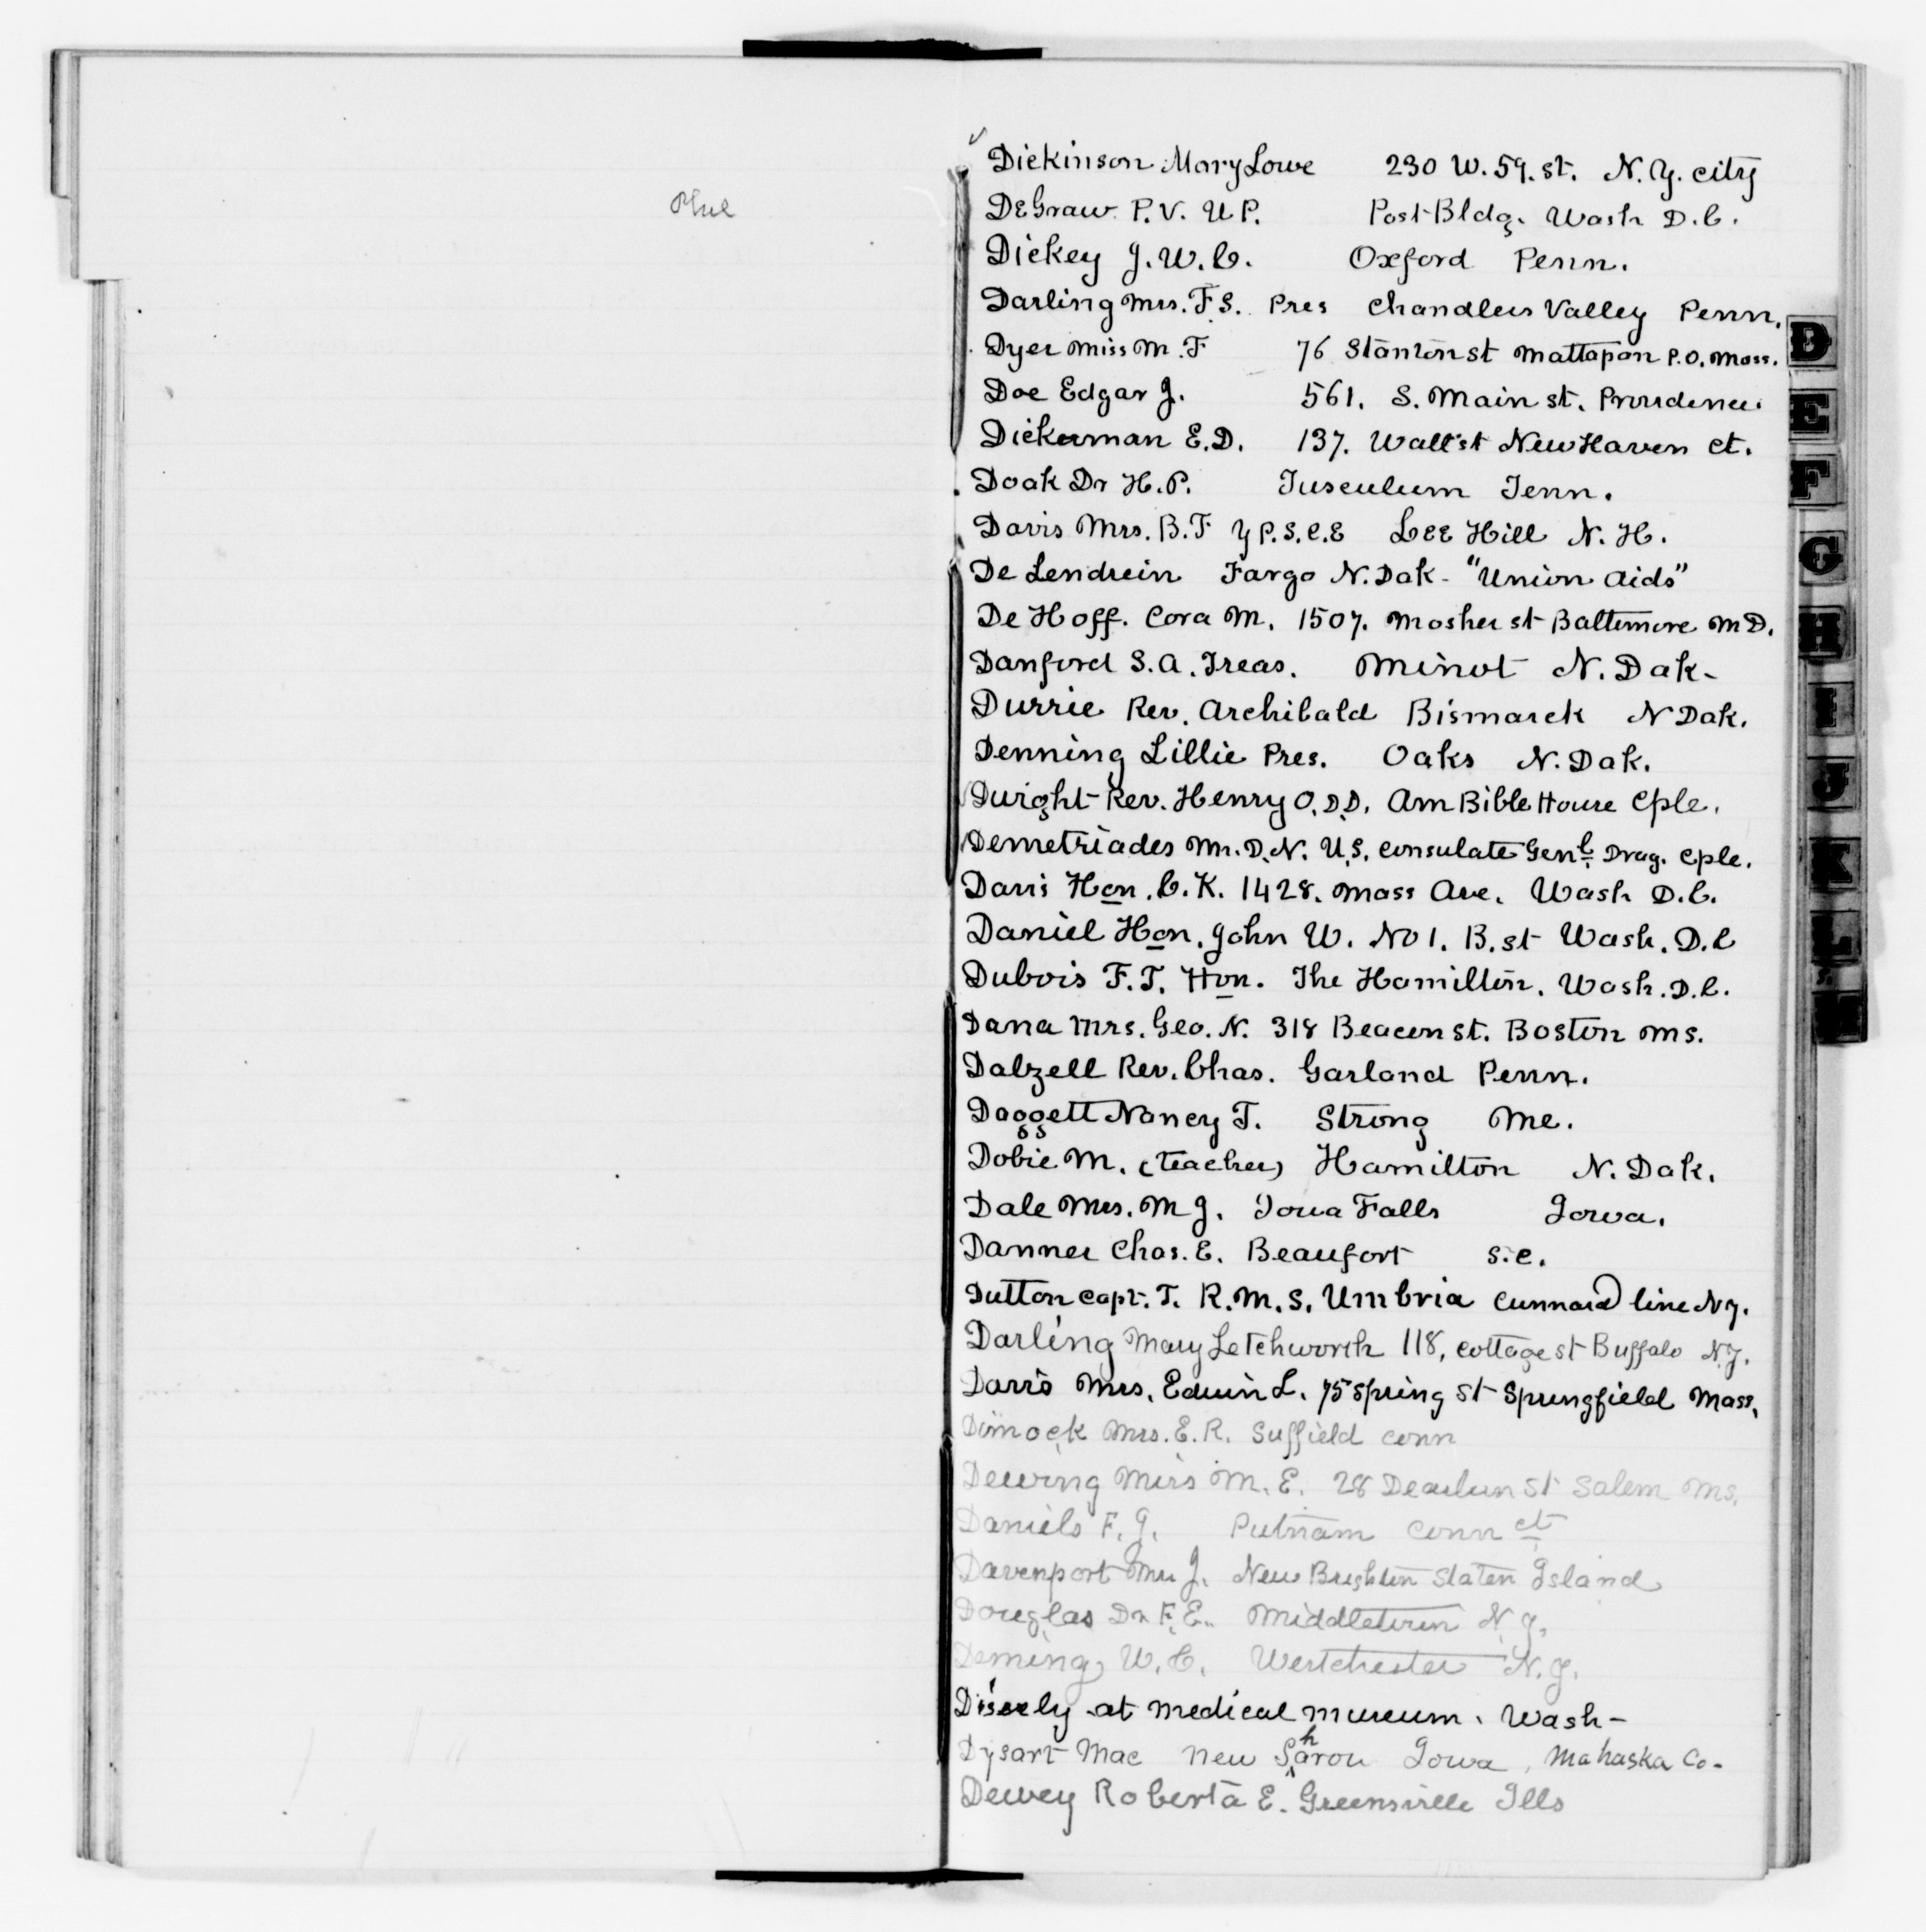 Dickinson Mary Lowe 230 W. 59. st. N. Y. city
DeGraw P. V. U P. Post Bldg. Wash D. C.
Dickey J. W. C. Oxford Penn.
Darling Mrs. F. S. Pres Chandlers Valley Penn.
Dyer Miss M. F 76 Stanton st Mattapan P. O. Mass.
Doe Edgar J. 561. S. Main st. Providence.
Dickerman E. D. 137. Wall st New Haven ct.
Doak Dr H. P. Tusculum Tenn.
Davis Mrs. B. F Y P. S. C. E Lee Hill N. H.
De Lendrein Fargo N. Dak - "Union Aids"
De Hoff. Cora M. 1507. Mosher st Baltimore MD.
Danford S. A. Treas. Minot N. Dak -
Durrie Rev. Archibald Bismarck N Dak.
Denning Lillie Pres. Oaks N. Dak.
Dwight Rev. Henry O. D. D. Am Bible House Cple.
Demetriades Mr. D. N. U. S. Consulate Genl. Drag. Cple.
Davis Hon. C. K. 1428. Mass Ave. Wash D. C.
Daniel Hon. John W. No 1. B. st Wash. D. C
Dubois F. T. Hon. The Hamilton. Wash. D. C.
Dana Mrs. Geo. N. 318 Beacon st. Boston Ms.
Dalzell Rev. Chas. Garland Penn.
Daggett Nancy T. Strong Me.
Dobie M. (teacher) Hamilton N. Dak.
Dale Mrs. M J. Iowa Falls Iowa.
Danner Chas. E. Beaufort S. C.
Dutton Capt. T. R. M. S. Umbria Cunnard line N Y.
Darling Mary Letchworth 118, cottage st Buffalo N. Y.
Davis Mrs. Edwin L. 75 Spring st Springfield Mass.
Dimock Mrs. E. R. Suffield Conn
Dewing Miss M. E. 28 Dearbun St Salem Ms.
Daniels F. J. Putnam Conn ct
Davenport Mrs J. New Brighton Staten Island
Douglas Dr F. E. Middletown N. Y.
Deming W. C. Westchester N. Y.
at Medical Museum. Wash -
Dysart Mae New Sharon Iowa, Mahaska Co -
Dewey Roberta E. Greensville Ills
D
E
F
G
H
I
J
K
L
M